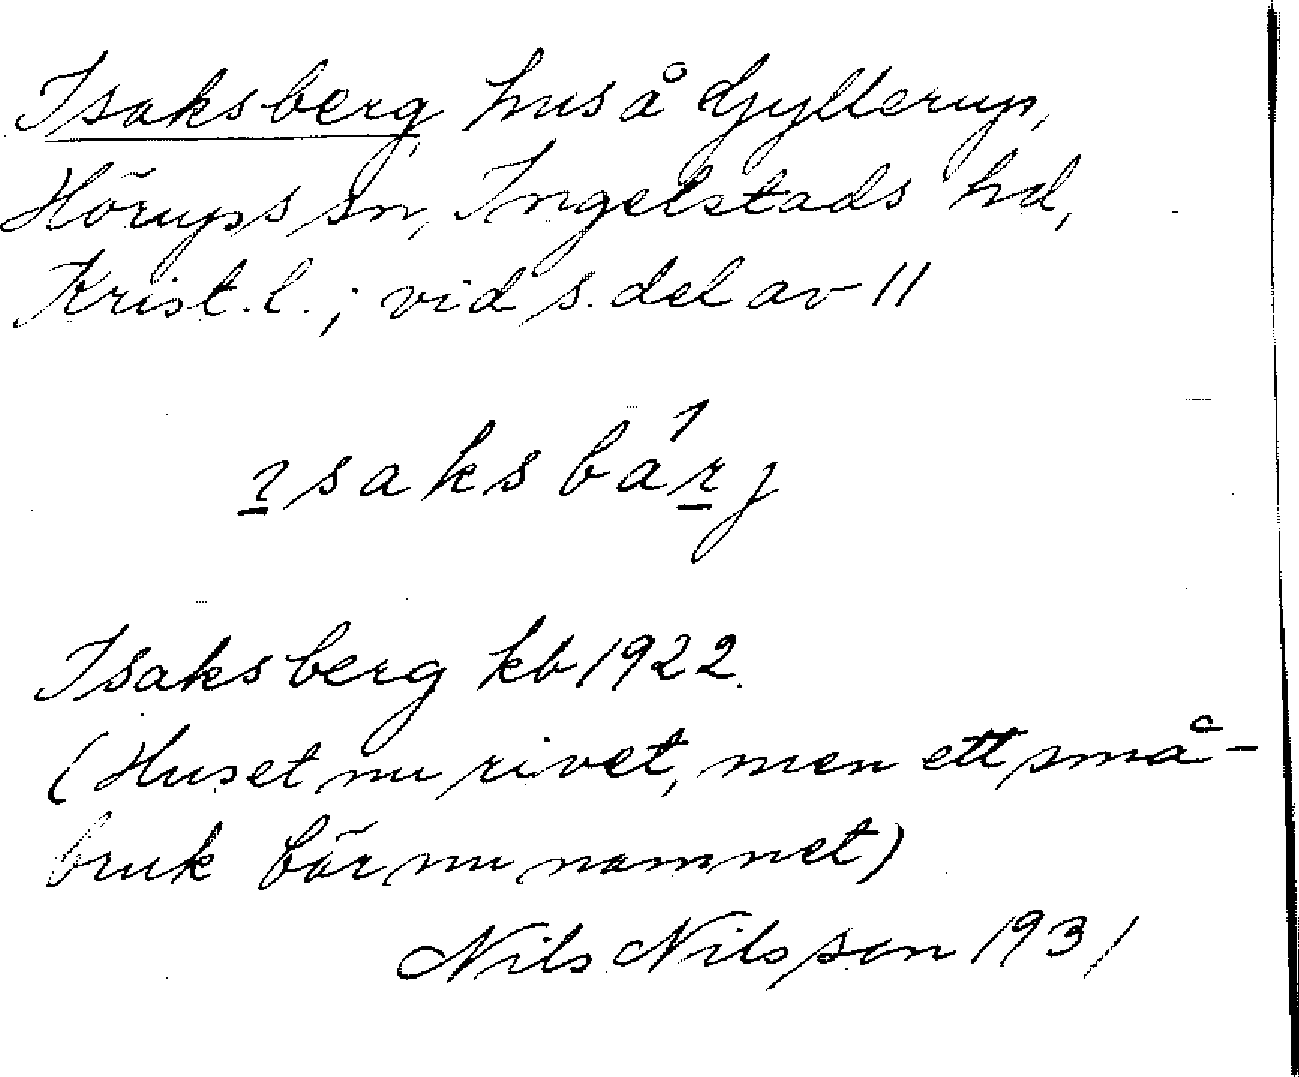 Isaksberg hus å Gyllerup,
Hörups sn, Ingelstads hd,
Krist. l.; vid s. del av 11
ɿsaksbárj
Isaksberg kb 1922.
(Huset nu rivet, men ett små-
bruk bär nu namnet)
Nils Nilsson 1931